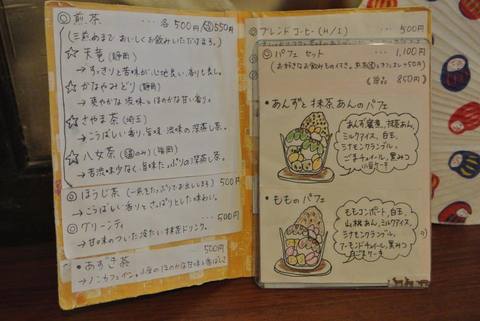 ◎ 煎茶 ・・・各500円/㊌550円
(三煎めまで おいしくお飲みいただけます。)
☆ 天竜 (静岡)
→すっきりと苦味が心地良い香りも良し。
☆ かなやみどり (静岡)
→爽やかな渋味とほのかな甘い香り。
☆ さやま茶 (埼玉)
→こうばしい香り、旨味、渋味の深蒸し茶。
☆ 八女茶 (のみ) (福岡)
→苦渋味少なく、旨味たっぷりの深蒸し茶。
◎ ほうじ茶 (一煎をたっぷりとお出ししまる) 500円
→こうばしい香りで さっぱりとした味わい。
◎ グリーンティ 500円
→甘味のついた冷たい抹茶ドリンク。
・あずき茶 500円
→ノンカフェイン。小豆のほのかな甘味と香ばしさ
◎ ブレンドコーヒー (H/I) 500円
◎ パフェ セット ・・・ 1,100円
(お好きなお飲みもの付き。
単品 850円
・あんずと抹茶あんのパフェ
あんず蜜煮、抹茶あん、
ミルクアイス、白玉、
シナモンクランブル、
ごまチュイール、黒みつ
小豆ケーキ
・もものパフェ
ももコンポート、白玉、
山桃あん、ミルクアイス、
シナモンクランブル、
アーモンドチュイール、黒みつ
ケーキ